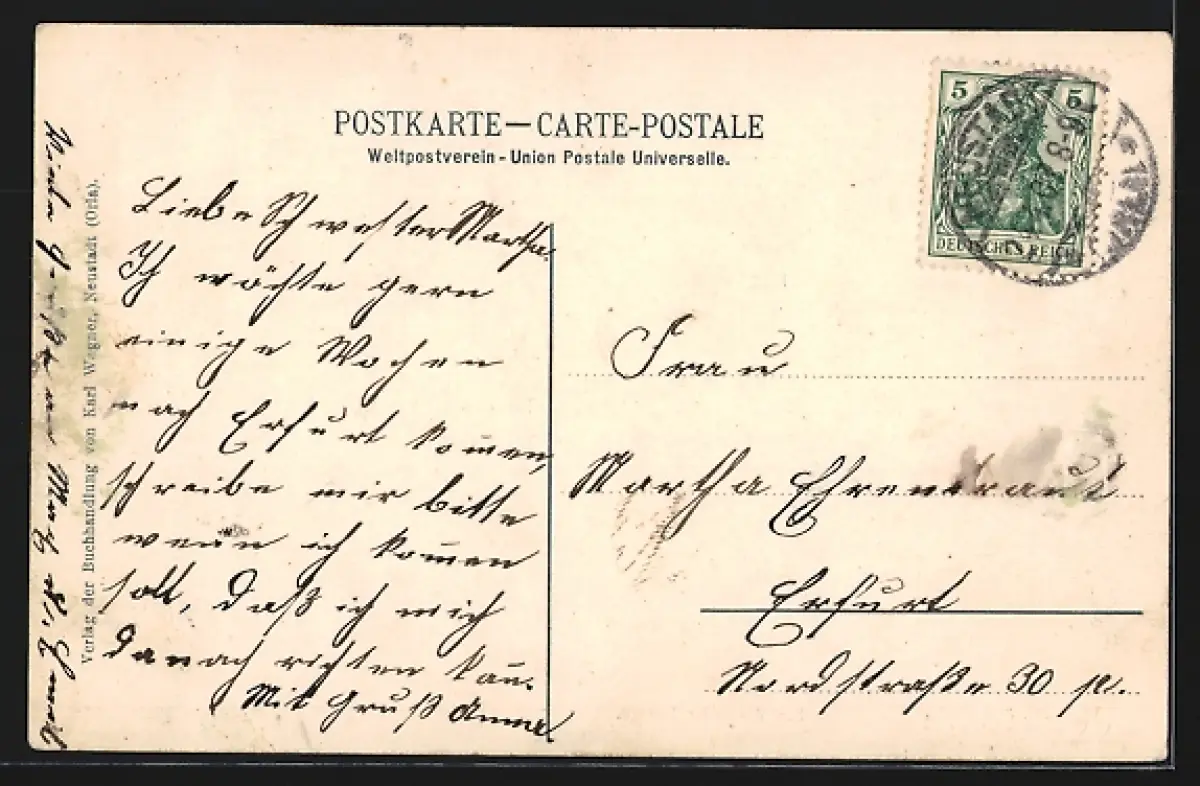 POSTKARTE—CARTE-POSTALE
Weltpostverein - Union Postale Universelle.
5 5
DEUTSCHES REICH
Liebe Schwester Martha.
Ich möchte gern
einige Wochen
nach Erfurt kom̄en,
schreibe mir bitte
wenn ich kom̄en
soll, daß ich mich
danach richten kan̄.
Mit Gruß Anna.
Frau
Martha Ehrentraut
Erfurt
Nordstraße 30 p.
Verlag der Buchhandlung von Karl Wagner, Neustadt (Orla).